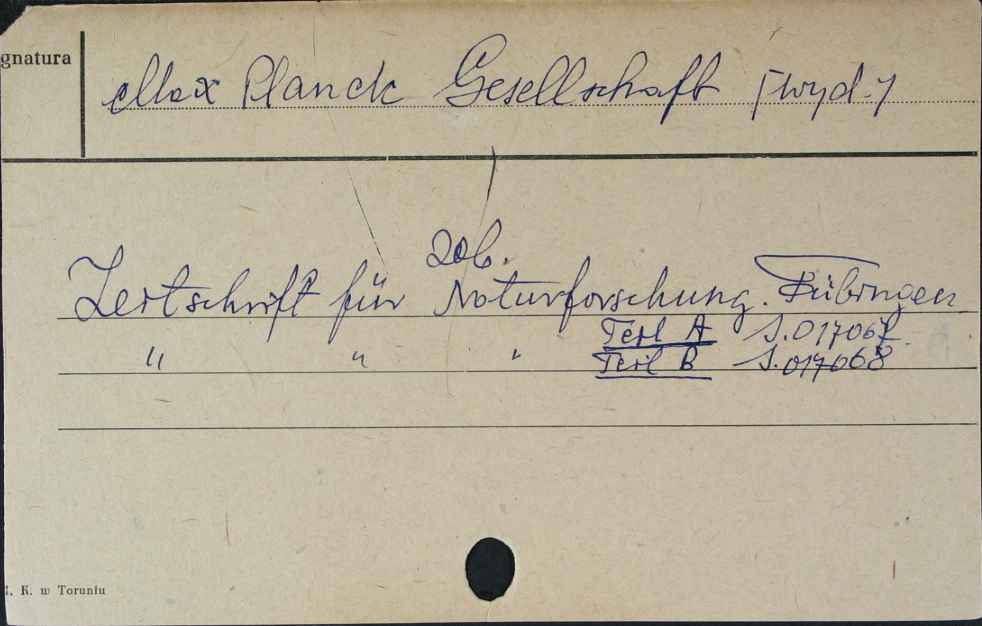 gnatura
Max Planck Gesellschaft [wyd.]
zob.
Zeitschrift für Naturforschung. Tübingen
Teil A J.017067.
" " " Teil B J.017068
K. w Toruniu